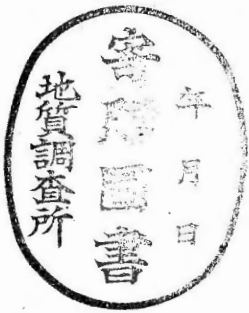 年月日
寄贈圖書
地質調査所